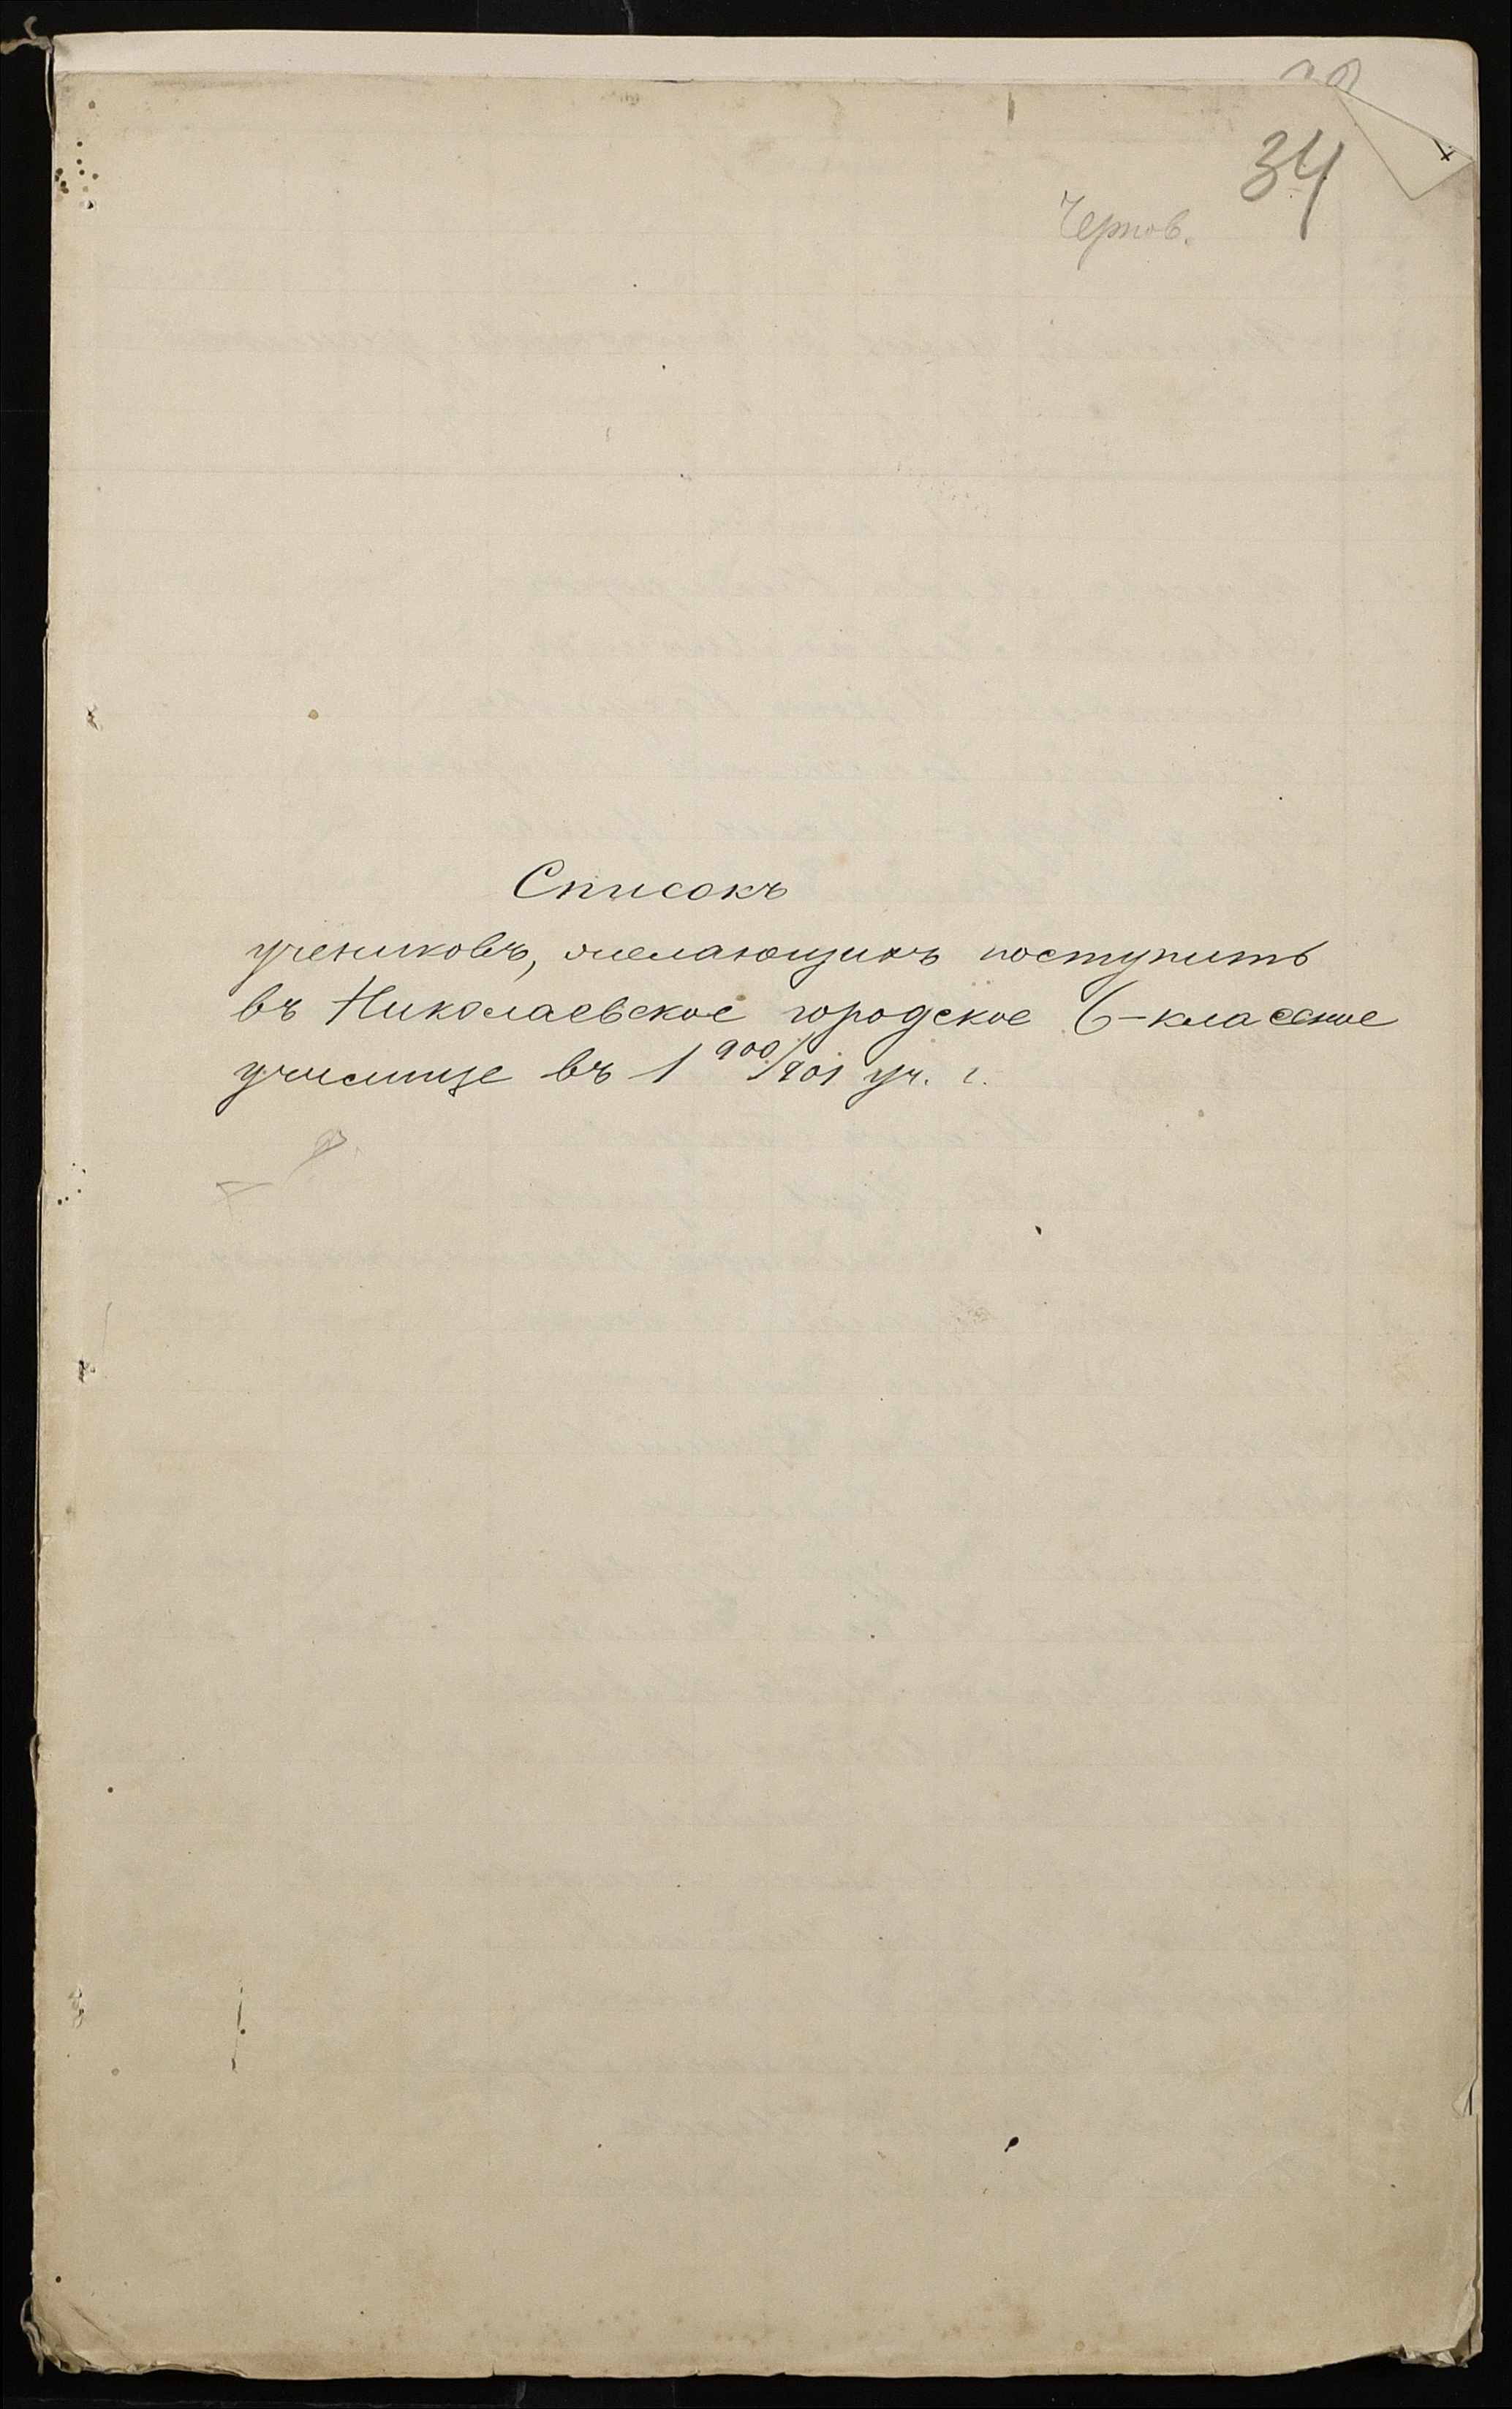 34
Чернов.
Списокъ
учениковъ, желающихъ поступить
въ Николаевское городское 6-классное
училище въ 1900/901 уч. г.